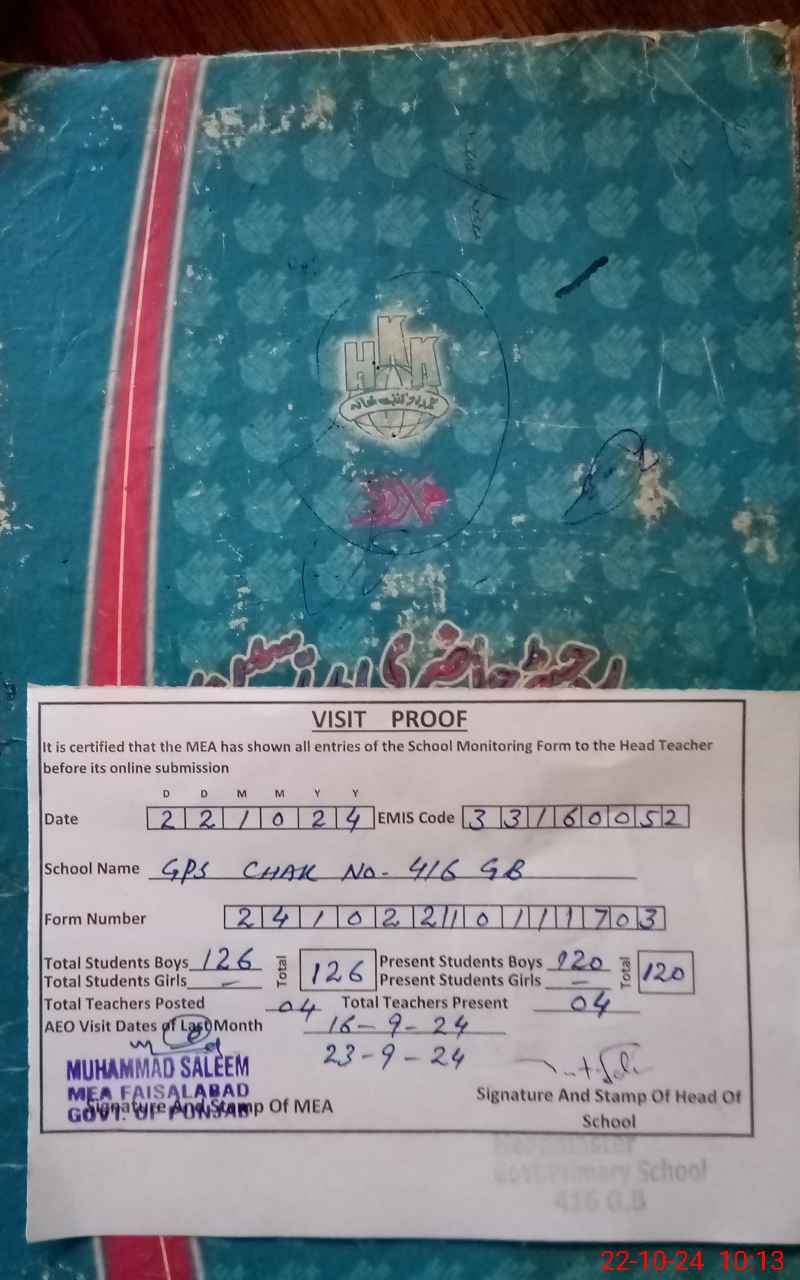 HKK
VISIT PROOF
It is certified that the MEA has shown all entries of the School Monitoring Form to the Head Teacher
before its online submission
D D M M Y Y
Date 2 2 1 0 2 4 EMIS Code 3 3 1 6 0 0 5 2
School Name GPS CHAK NO- 416 GB
Form Number 2 4 1 0 2 2 1 0 1 1 1 7 0 3
Total Students Boys 126 Total 126 Present Students Boys 120 Total 120
Total Students Girls - Present Students Girls -
Total Teachers Posted 04 Total Teachers Present 04
AEO Visit Dates of Last Month 16-9-24
23-9-24
MUHAMMAD SALEEM
MEA FAISALABAD
GOVT. OF PUNJAB
Signature And Stamp Of MEA
Signature And Stamp Of Head Of
School
Headmaster
Govt. Primary School
416 G.B
22-10-24 10:13